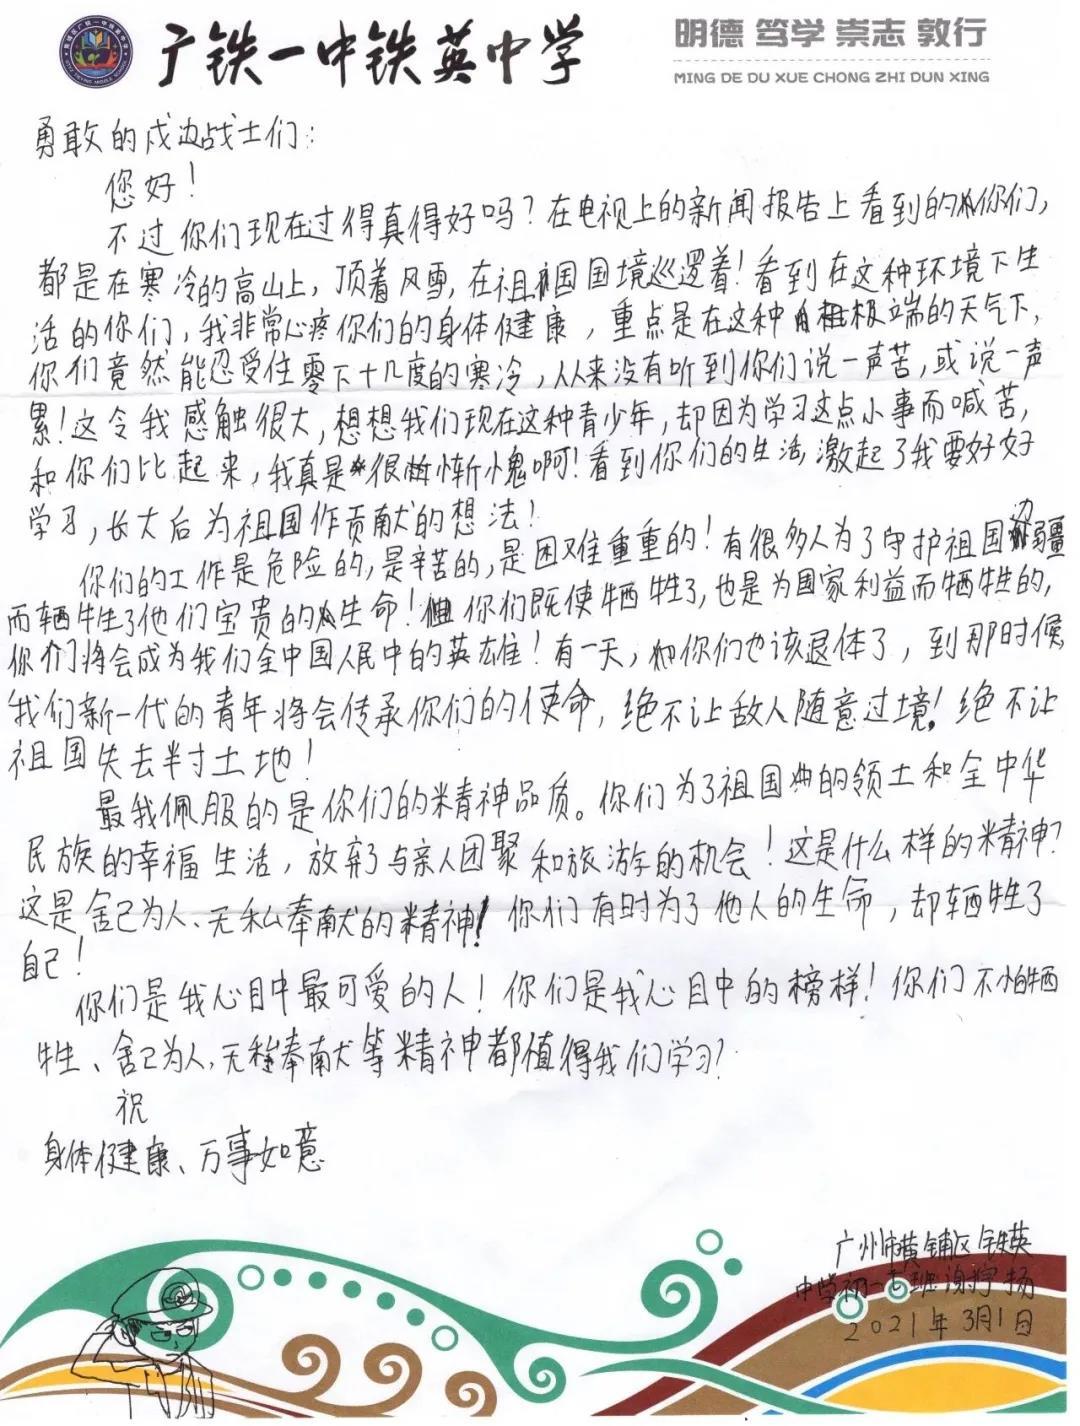 广铁一中铁英中学
明德 笃学 崇志 敦行
MING DE DU XUE CHONG ZHI DUN XING
勇敢的戍边战士们：
您好！
不过你们现在过得真得好吗？在电视上的新闻报告上看到的你们，
都是在寒冷的高山上，顶着风雪，在祖国国境巡逻着！看到在这种环境下生
活的你们，我非常心疼你们的身体健康，重点是在这种极端的天气下，
你们竟然能忍受住零下十几度的寒冷，从来没有听到你们说一声苦，或说一声
累！这令我感触很大，想想我们现在这种青少年，却因为学习这点小事而喊苦，
和你们比起来，我真是很惭愧啊！看到你们的生活，激起了我要好好
学习，长大后为祖国作贡献的想法！
你们的工作是危险的，是辛苦的，是困难重重的！有很多人为了守护祖国边疆
而牺牲了他们宝贵的生命！你们既使牺牲了，也是为国家利益而牺牲的，
你们将会成为我们全中国人民中的英雄！有一天，你们也该退休了，到那时候
我们新一代的青年将会传承你们的使命，绝不让敌人随意过境！绝不让
祖国失去半寸土地！
最我佩服的是你们的精神品质。你们为了祖国的领土和全中华
民族的幸福生活，放弃了与亲人团聚和旅游的机会！这是什么样的精神？
这是舍己为人、无私奉献的精神！你们有时为了他人的生命，却牺牲了
自己！
你们是我心目中最可爱的人！你们是我心目中的榜样！你们不怕牺
牲、舍己为人，无私奉献等精神都值得我们学习？
祝
身体健康、万事如意
广州市黄铺区铁英
中学初一七班谢宇扬
2021年3月1日